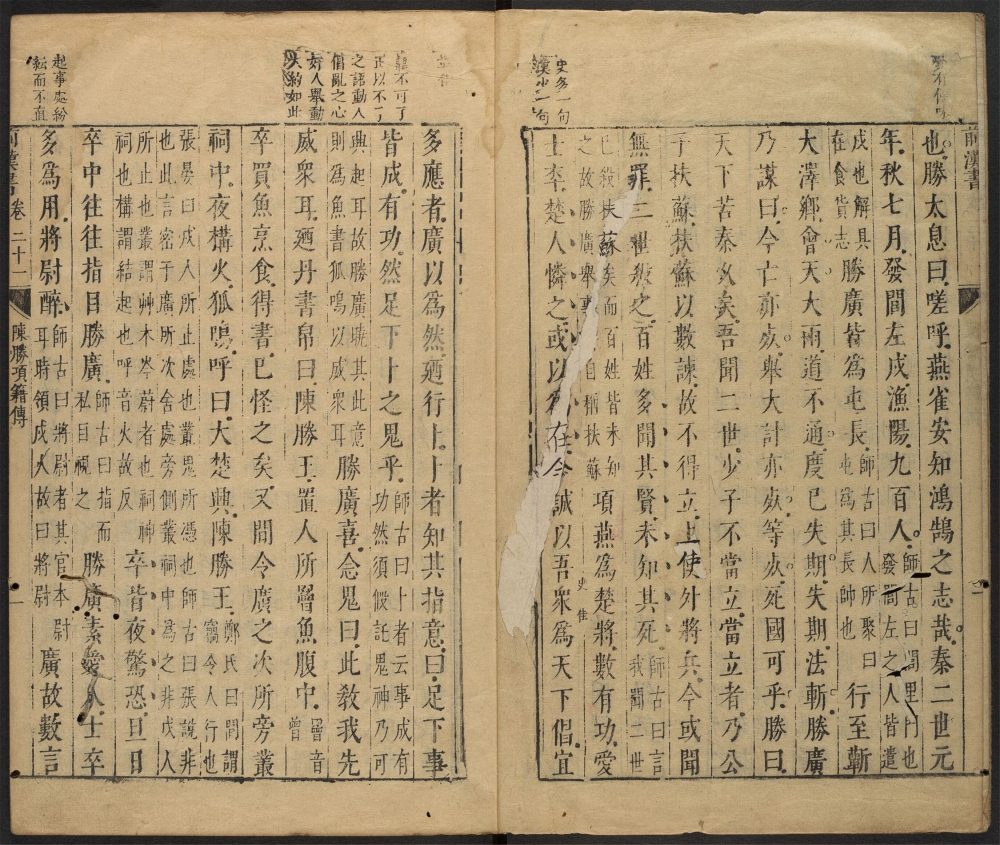 前漢書
也勝太息曰嗟呼燕雀安知鴻鵠之志哉秦二世元
年秋七月發閭左戍漁陽九百人師古曰閭里門也發閭左之人皆遣
戍也解具在食貨志勝廣皆為屯長師古曰人所聚曰屯為其長帥也行至蘄
大澤鄉會天大雨道不通度已失期失期法斬勝廣
乃謀曰今亡亦死舉大計亦死等死死國可乎勝曰
天下苦秦久矣吾聞二世少子不當立當立者乃公
子扶蘇扶蘇以數諫故不得立上使外將兵今或聞
無罪二世殺之百姓多聞其賢未知其死師古曰言我聞二世
已殺扶蘇矣而百姓皆未知之故勝廣舉事自稱扶蘇項燕為楚將數有功愛
士卒楚人憐之或以為在今誠以吾眾為天下倡宜
史多一句
多應者廣以為然廼行卜卜者知其指意曰足下事
皆成有功然足下卜之鬼乎師古曰卜者云事成有功然須假託鬼神乃可
興起耳故勝廣曉其此意則為魚書狐鳴以威眾耳勝廣喜念鬼曰此教我先
威眾耳廼丹書帛曰陳勝王置人所罾魚腹中罾音曾
卒買魚烹食得書已怪之矣又間令廣之次所旁叢
祠中夜構火狐鳴呼曰大楚興陳勝王鄭氏曰間謂竊令人行也
張晏曰戍人所止處也叢鬼所憑也師古曰張說非也此言密于廣所次舍處旁側叢祠中為之非戍人
所止也叢謂艸木岑蔚者也祠神祠也構謂結起也呼音火故反卒皆夜驚恐旦日
卒中往往指目勝廣師古曰指而私目視之勝廣素愛人士卒
多為用將尉醉師古曰將尉者其官本尉耳時領戍人故曰將尉廣故數言
之語動人
倡亂之心
奸人舉動
大約如此
起事處紛
紜而不直
前漢書卷三十一
陳勝項籍傳
一